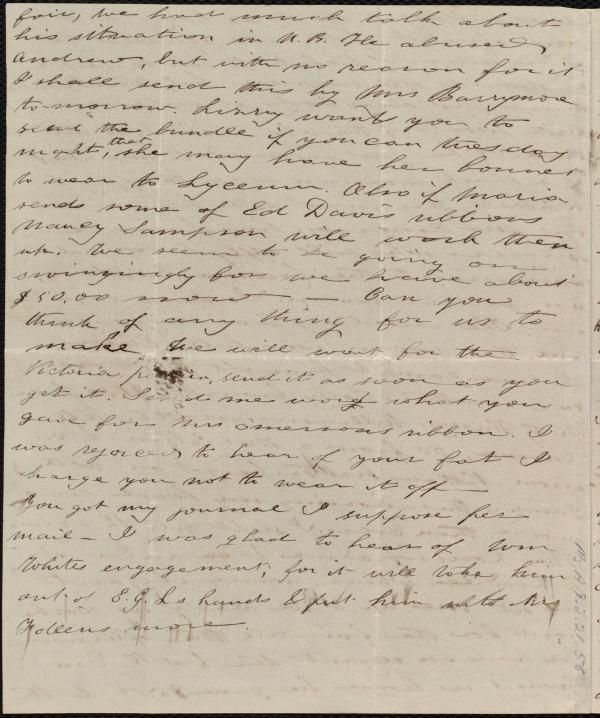 fair, we had much talk about
his situation in N.B. He abused
Andrew, but with no reason for it
I shall send this by Mrs Barrymore
to-morrow. Lizzy wants you to
send the bundle if you can tuesday
night, that she may have her bonnet
to wear to Lyceum. Also if Maria
sends some of Ed Davis ribbons
Nancy Sampson will work them
up. We seem to be going on
swingingly for we have about
$50.00 now — Can you
think of any thing for us to
make We will want for the
Victoria send it as soon as you
get it. Send me word what you
gave for Mrs Emersons ribbon. I
was rejoiced to hear of your fat I
charge you not to wear it off —
You got my journal I suppose per
mail — I was glad to hear of Wm
Whites engagement, for it will take him
out of E.G.Ls hands & put him into Mrs
Follens more.
Ms.A.9.2.21.58